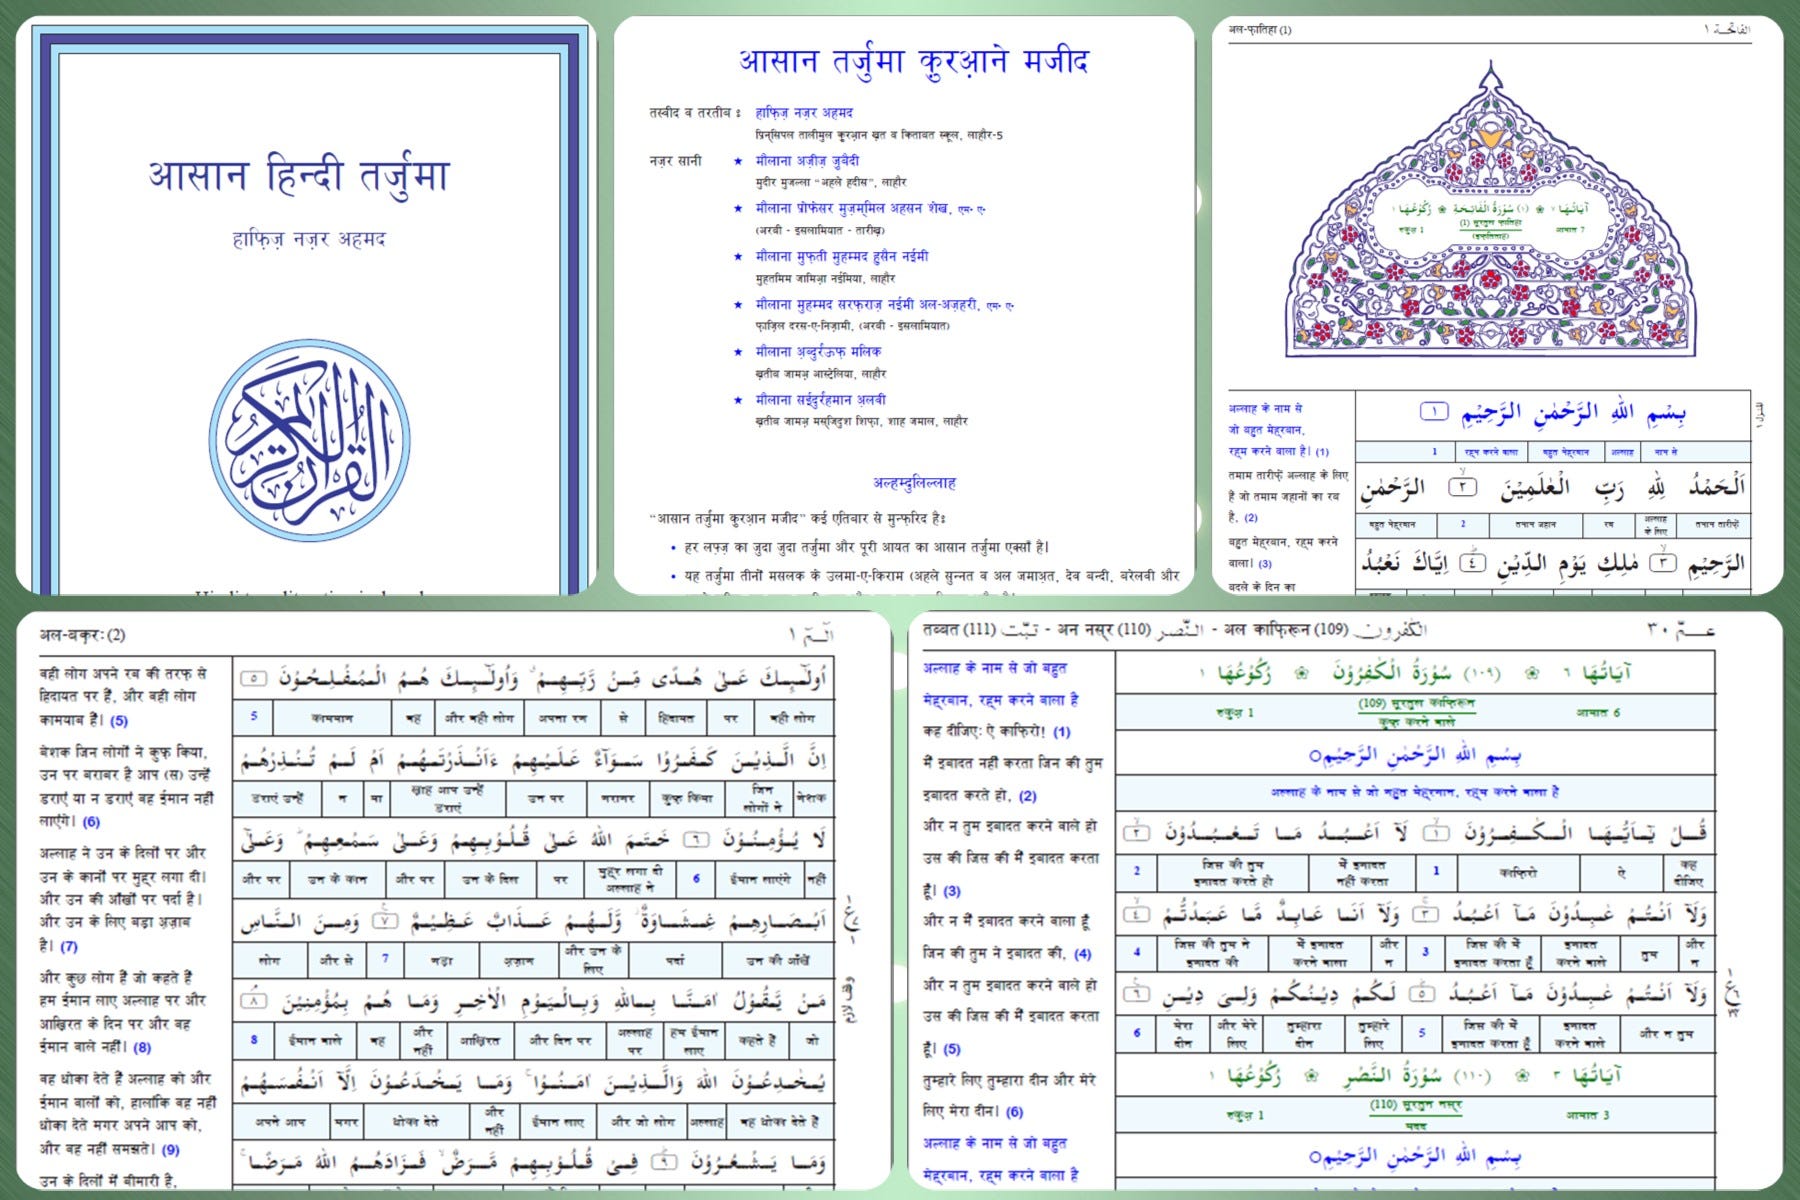 आसान हिन्दी तर्जुमा
हाफ़िज़ नज़र अहमद
القرآن الكريم
आसान तर्जुमा क़ुरआने मजीद
तस्वीद व तरतीब ः हाफ़िज़ नज़र अहमद
प्रिन्सिपल तालीमुल क़ुरआन ख़त व किताबत स्कूल, लाहौर-5
नज़र सानी ★ मौलाना अज़ीज़ ज़ुबैदी
मुदीर मुजल्ला “अहले हदीस”, लाहौर
★ मौलाना प्रोफेसर मुज़म्मिल अहसन शेख़, एम॰ ए॰
(अरबी - इसलामियात - तारीख़)
★ मौलाना मुफ़ती मुहम्मद हुसैन नईमी
मुहतमिम जामिआ नईमिया, लाहौर
★ मौलाना मुहम्मद सरफ़राज़ नईमी अल-अज़हरी, एम॰ ए॰
फ़ाज़िल दरस-ए-निज़ामी, (अरबी - इसलामियात)
★ मौलाना अ़ब्दुर्रऊफ़ मलिक
ख़तीब जामअ़ आस्ट्रेलिया, लाहौर
★ मौलाना सईदुर्रहमान अ़लवी
ख़तीब जामअ़ मस्जिदुश शिफ़ा, शाह जमाल, लाहौर
अल्हम्दुलिल्लाह
“आसान तर्जुमा क़ुरआन मजीद” कई एतिबार से मुन्फ़रिद हैः
• हर लफ़्ज़ का जुदा जुदा तर्जुमा और पूरी आयत का आसान तर्जुमा एक्साँ है।
• यह तर्जुमा तीनों मसलक के उलमा-ए-किराम (अहले सुन्नत व अल जमाअ़त, देव बन्दी, बरेलवी और
अल-फ़ातिहा (1) الفاتحة ١
آيَاتُهَا ٧ (١) سُوْرَةُ الْفَاتِحَةِ رُكُوْعُهَا ١
रुकुअ़ 1 (1) सूरतुल फ़ातिहा आयात 7
अल्लाह के नाम से
जो बहुत मेह्रबान,
रह्म करने वाला है। (1)
तमाम तारीफ़ें अल्लाह के लिए
हैं जो तमाम जहानों का रब
है, (2)
बहुत मेह्रबान, रह्म करने
वाला। (3)
बदले के दिन का
بِسْمِ اللهِ الرَّحْمٰنِ الرَّحِيْمِ ١
1 रह्म करने वाला बहुत मेह्रबान अल्लाह नाम से
اَلْحَمْدُ لِلّٰهِ رَبِّ الْعٰلَمِيْنَ ٢ الرَّحْمٰنِ
बहुत मेह्रबान 2 तमाम जहान रब अल्लाह के लिए तमाम तारीफ़ें
الرَّحِيْمِ ٣ مٰلِكِ يَوْمِ الدِّيْنِ ٤ اِيَّاكَ نَعْبُدُ
अल-बक़रः (2) الٓمّٓ ١
वही लोग अपने रब की तरफ़ से
हिदायत पर हैं, और वही लोग
कामयाब हैं। (5)
बेशक जिन लोगों ने कुफ़्र किया,
उन पर बराबर है आप (स) उन्हें
डराएं या न डराएं वह ईमान नहीं
लाएंगे। (6)
अल्लाह ने उन के दिलों पर और
उन के कानों पर मुह्र लगा दी।
और उन की आँखों पर पर्दा है।
और उन के लिए बड़ा अ़ज़ाब
है। (7)
और कुछ लोग हैं जो कहते हैं
हम ईमान लाए अल्लाह पर और
आख़िरत के दिन पर और वह
ईमान वाले नहीं। (8)
वह धोका देते हैं अल्लाह को और
ईमान वालों को, हालांकि वह नहीं
धोका देते मगर अपने आप को,
और वह नहीं समझते। (9)
उन के दिलों में बीमारी है,
اُولٰٓئِكَ عَلٰى هُدًى مِّنْ رَّبِّهِمْ وَاُولٰٓئِكَ هُمُ الْمُفْلِحُوْنَ ٥
5 कामयाब वह और वही लोग अपना रब से हिदायत पर वही लोग
اِنَّ الَّذِيْنَ كَفَرُوْا سَوَآءٌ عَلَيْهِمْ ءَاَنْذَرْتَهُمْ اَمْ لَمْ تُنْذِرْهُمْ
डराएं उन्हें न या ख़्वाह आप उन्हें डराएं उन पर बराबर कुफ़्र किया जिन लोगों ने बेशक
لَا يُؤْمِنُوْنَ ٦ خَتَمَ اللهُ عَلٰى قُلُوْبِهِمْ وَعَلٰى سَمْعِهِمْ وَعَلٰٓى
और पर उन के कान और पर उन के दिल पर मुह्र लगा दी अल्लाह ने 6 ईमान लाएंगे नहीं
اَبْصَارِهِمْ غِشَاوَةٌ وَّلَهُمْ عَذَابٌ عَظِيْمٌ ٧ وَمِنَ النَّاسِ
लोग और से 7 बड़ा अ़ज़ाब और उन के लिए पर्दा उन की आँखें
مَنْ يَّقُوْلُ اٰمَنَّا بِاللهِ وَبِالْيَوْمِ الْاٰخِرِ وَمَا هُمْ بِمُؤْمِنِيْنَ ٨
8 ईमान वाले वह और नहीं आख़िरत और दिन पर अल्लाह पर हम ईमान लाए कहते हैं जो
يُخٰدِعُوْنَ اللهَ وَالَّذِيْنَ اٰمَنُوْا وَمَا يَخْدَعُوْنَ اِلَّآ اَنْفُسَهُمْ
अपने आप मगर धोका देते और नहीं ईमान लाए और जो लोग अल्लाह वह धोका देते हैं
وَمَا يَشْعُرُوْنَ ٩ فِيْ قُلُوْبِهِمْ مَّرَضٌ فَزَادَهُمُ اللهُ مَرَضًا
وقف لازم
तब्बत (111) تبّت - अन नस्र (110) النّصر - अल काफ़िरून (109) الكٰفرون عمّ ٣٠
अल्लाह के नाम से जो बहुत
मेह्रबान, रह्म करने वाला है
कह दीजिए: ऐ काफ़िरो! (1)
मैं इबादत नहीं करता जिन की तुम
इबादत करते हो, (2)
और न तुम इबादत करने वाले हो
उस की जिस की मैं इबादत करता
हूँ। (3)
और न मैं इबादत करने वाला हूँ
जिन की तुम ने इबादत की, (4)
और न तुम इबादत करने वाले हो
उस की जिस की मैं इबादत करता
हूँ। (5)
तुम्हारे लिए तुम्हारा दीन और मेरे
लिए मेरा दीन। (6)
अल्लाह के नाम से जो बहुत
मेह्रबान, रह्म करने वाला है
آيَاتُهَا ٦ (١٠٩) سُوْرَةُ الْكٰفِرُوْنَ رُكُوْعُهَا ١
रुकुअ़ 1 (109) सूरतुल काफ़िरून कुफ़्र करने वाले आयात 6
بِسْمِ اللهِ الرَّحْمٰنِ الرَّحِيْمِ
अल्लाह के नाम से जो बहुत मेह्रबान, रह्म करने वाला है
قُلْ يٰٓاَيُّهَا الْكٰفِرُوْنَ ١ لَآ اَعْبُدُ مَا تَعْبُدُوْنَ ٢
2 जिस की तुम इबादत करते हो मैं इबादत नहीं करता 1 काफ़िरो ऐ कह दीजिए
وَلَآ اَنْتُمْ عٰبِدُوْنَ مَآ اَعْبُدُ ٣ وَلَآ اَنَا عَابِدٌ مَّا عَبَدْتُّمْ ٤
4 जिस की तुम ने इबादत की मैं इबादत करने वाला और न 3 जिस की मैं इबादत करता हूँ इबादत करने वाले तुम और न
وَلَآ اَنْتُمْ عٰبِدُوْنَ مَآ اَعْبُدُ ٥ لَكُمْ دِيْنُكُمْ وَلِيَ دِيْنِ ٦
6 मेरा दीन और मेरे लिए तुम्हारा दीन तुम्हारे लिए 5 जिस की मैं इबादत करता हूँ इबादत करने वाले और न तुम
آيَاتُهَا ٣ (١١٠) سُوْرَةُ النَّصْرِ رُكُوْعُهَا ١
रुकुअ़ 1 (110) सूरतुन नस्र मदद आयात 3
بِسْمِ اللهِ الرَّحْمٰنِ الرَّحِيْمِ